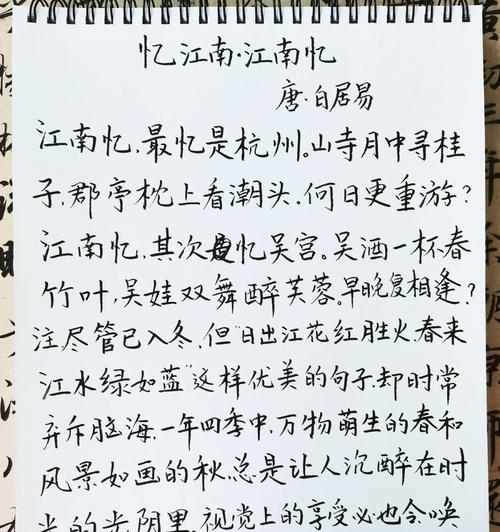 忆江南·江南忆
唐·白居易
江南忆,最忆是杭州。山寺月中寻桂
子,郡亭枕上看潮头,何日更重游?
江南忆,其次忆吴宫。吴酒一杯春
竹叶,吴娃双舞醉芙蓉。早晚复相逢?
注尽管已入冬,但"日出江花红胜火,春来
江水绿如蓝"这样优美的句子,却时常
弃斥脑海,一年四季中,万物萌生的春和
风景如画的秋,总是让人沉醉在时
光的光阴里,视觉上的享受必也会唤